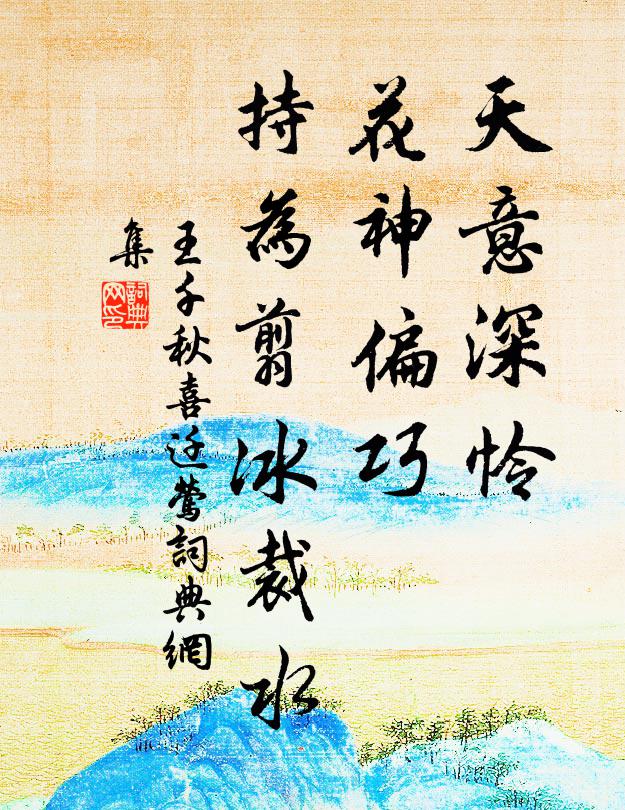 天意深怜
花神偏巧
持為剪冰裁水
王千秋喜迁莺詞典網
集
詞典
网印